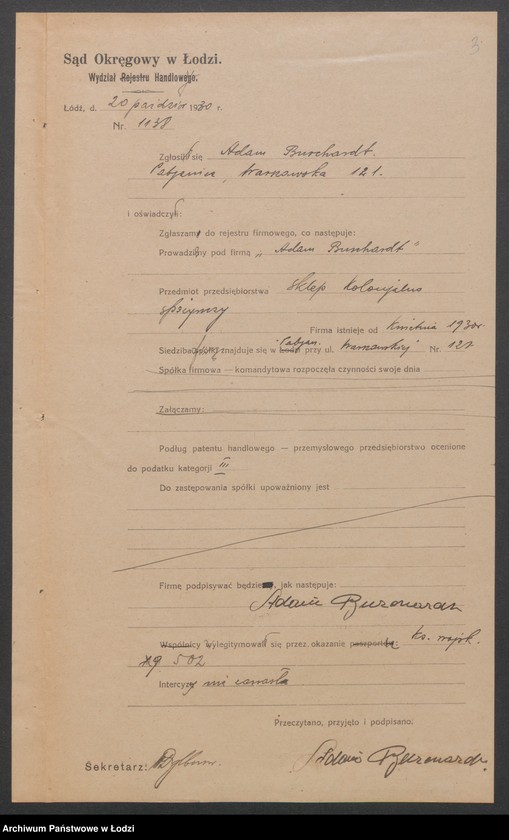 3
Sąd Okręgowy w Łodzi.
Wydział Rejestru Handlowego.
Łódź, d. 20 paździer 1930 r.
Nr. 1138
Zgłosił się Adam Burchardt.
Pabjanice, Warszawska 121.
i oświadczył:
Zgłaszam do rejestru firmowego, co następuje:
Prowadzę pod firmą „Adam Burchardt"
Przedmiot przedsiębiorstwa sklep kolonjalno
spożywczy
Firma istnieje od kwietnia 1930 r.
Siedziba spółki znajduje się w Łodzi Pabjan. przy ul. Warszawskiej Nr. 121
Spółka firmowa — komandytowa rozpoczęła czynności swoje dnia
Załączamy:
Podług patentu handlowego — przemysłowego przedsiębiorstwo ocenione
do podatku kategorji III
Do zastępowania spółki upoważniony jest
Firmę podpisywać będzie, jak następuje:
Adam Burchardt
Wspólnicy wylegitymowali się przez okazanie paszportów: ks. wojsk.
№ 502
Intercyzy nie zawarła
Przeczytano, przyjęto i podpisano.
Sekretarz:
Adam Burchardt.
Archiwum Państwowe w Łodzi